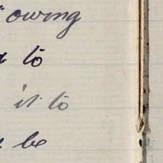 owing
to
it to
be